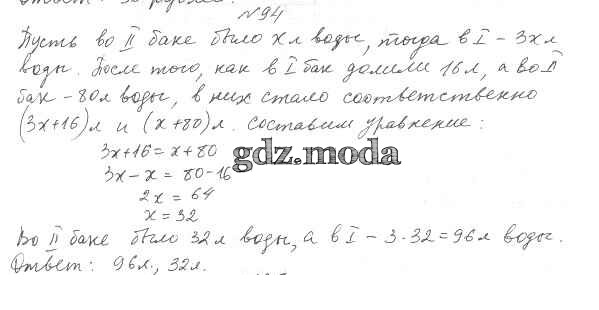 №94
Пусть во II баке было x л воды, тогда в I – 3x л
воды. После того, как в I бак долили 16 л, а во II
бак – 80 л воды, в них стало соответственно
(3x+16) л и (x+80) л. Составим уравнение:
3x+16 = x+80
gdz.moda
3x – x = 80–16
2x = 64
x = 32
Во II баке было 32 л воды, а в I – 3·32 = 96 л воды.
Ответ: 96 л., 32 л.